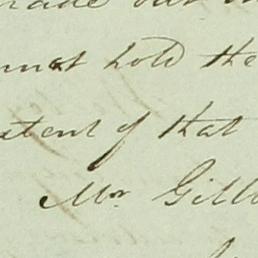 made out
cannot hold the
extent of that
Mr Gill